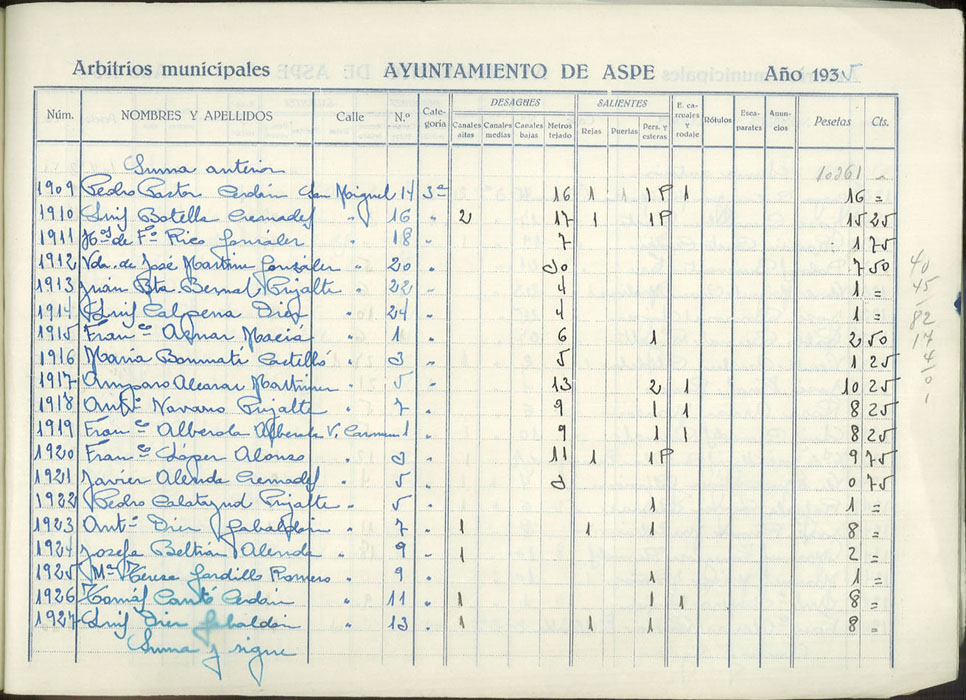 Arbitrios municipales AYUNTAMIENTO DE ASPE Año 193
Núm. NOMBRES Y APELLIDOS Calle N.º Cate-goría DESAGUES Canales altas Canales medias Canales bajas Metros tejado SALIENTES Rejas Puertas Pers. y esteras E. ca-rruajes y rodaje Rótulos Esca-parates Anun-cios Pesetas Cts.
Suma anterior 10261 -
1909 Pedro Pastor Cerdán San Miguel 14 3ª 16 1 1 1P 1 16 =
1910 Luis Botella Cremades " 16 " 2 17 1 1P 15 25
1911 Hos de Fo Rico González " 18 " 7 1 75
1912 Vda. de José Martínez González " 20 " 30 7 50
1913 Juan Bta. Bernal Pujalte " 22 " 4 1 =
1914 Luis Calpena Díez " 24 " 4 1 =
1915 Franco Aznar Maciá " 1 " 6 1 2 50
1916 María Bonmatí Castelló " 3 " 5 1 25
1917 Amparo Alcaraz Martínez " 5 " 13 2 1 10 25
1918 Anto Navarro Pujalte " 7 " 9 1 1 8 25
1919 Franco Alberola Alberola V. Carmen 1 " 9 1 1 8 25
1920 Franco López Alonso " 3 " 11 1 1P 9 75
1921 Javier Alenda Cremades " 5 " 3 0 75
1922 Pedro Calatayud Pujalte " 5 " 1 1 =
1923 Anto Díez Gabaldón " 7 " 1 1 1 8 =
1924 Josefa Beltrán Alenda " 9 " 1 2 =
1925 Mª Teresa Gordillo Romero " 9 " 1 1 =
1926 Tomás Cantó Cerdán " 11 " 1 1 1 8 =
1927 Luis Díez Gabaldón " 13 " 1 1 1 8 =
Suma y sigue
40
45
82
17